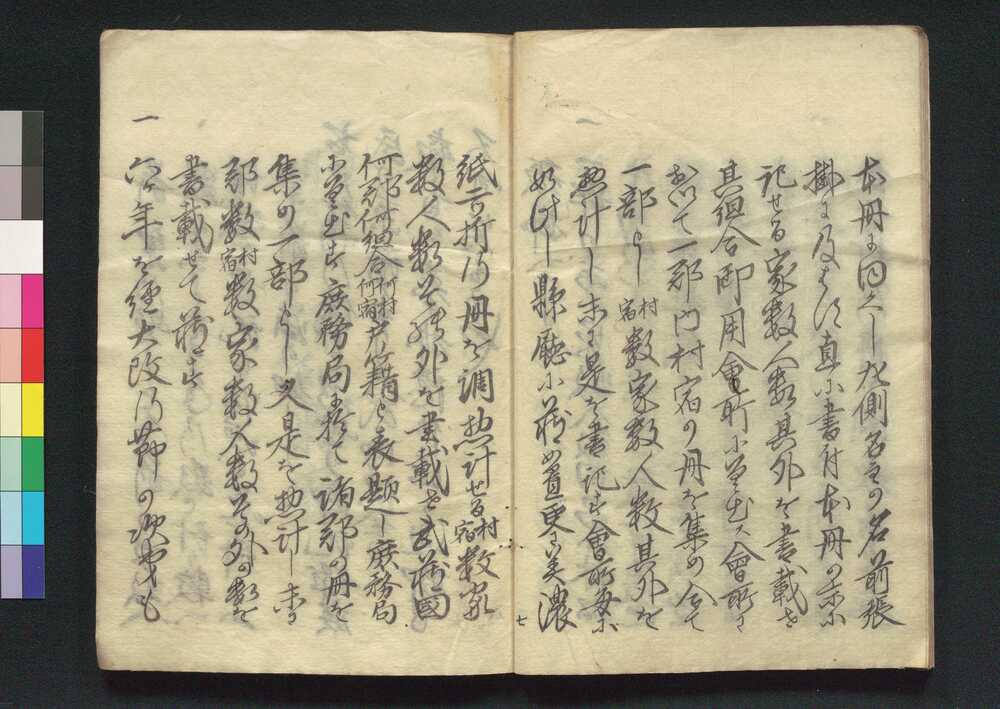 本冊に同くし九側名々の名前張
掛に及はす直に書付本冊の末に
記せる家数人数其外を書載せ
其組合御用會所に差出ス會所に
おいて一郡内村宿の冊を集め合て
一部とし村宿数家数人数其外を
惣計し末に是を書記す會所毎に
如此し縣廳に蔵め置更に美濃
七
紙二折の冊を調惣計せる村宿数家
数人数其外を書載せ武蔵國
何郡何組合何村何宿戸籍と表題し庶務局
に差出す庶務局に於て諸郡の冊を
集め一部とし又是を惣計し末に
郡数村宿数家数人数その外の数を
書載せて蔵す
一 六ヶ年を經大改の節の次第も